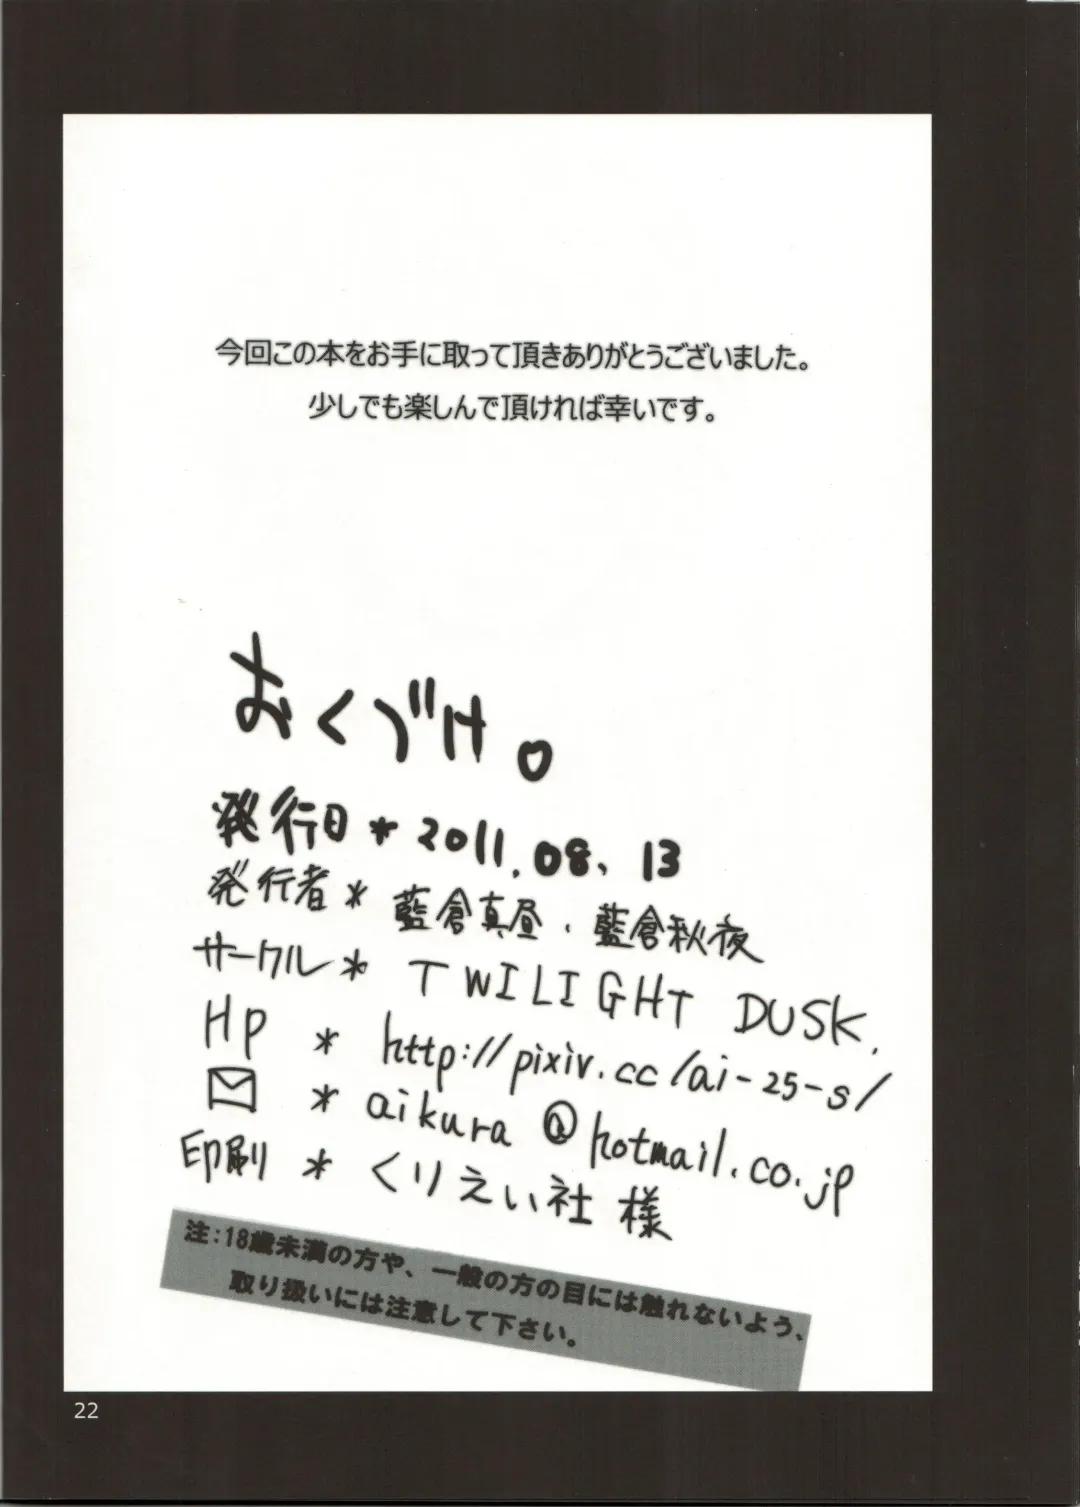 今回この本をお手に取って頂きありがとうございました。
少しでも楽しんで頂ければ幸いです。
おくづけ。
発行日*2011.08、13
発行者*藍倉真昼、藍倉秋夜
サークル*TWILIGHT DUSK.
HP*http://pixiv.cc/ai-25-s/
*aikura@hotmail.co.jp
印刷*くりえい社様
注:18歳未満の方や、一般の方の目には触れないよう、
取り扱いには注意して下さい。
22